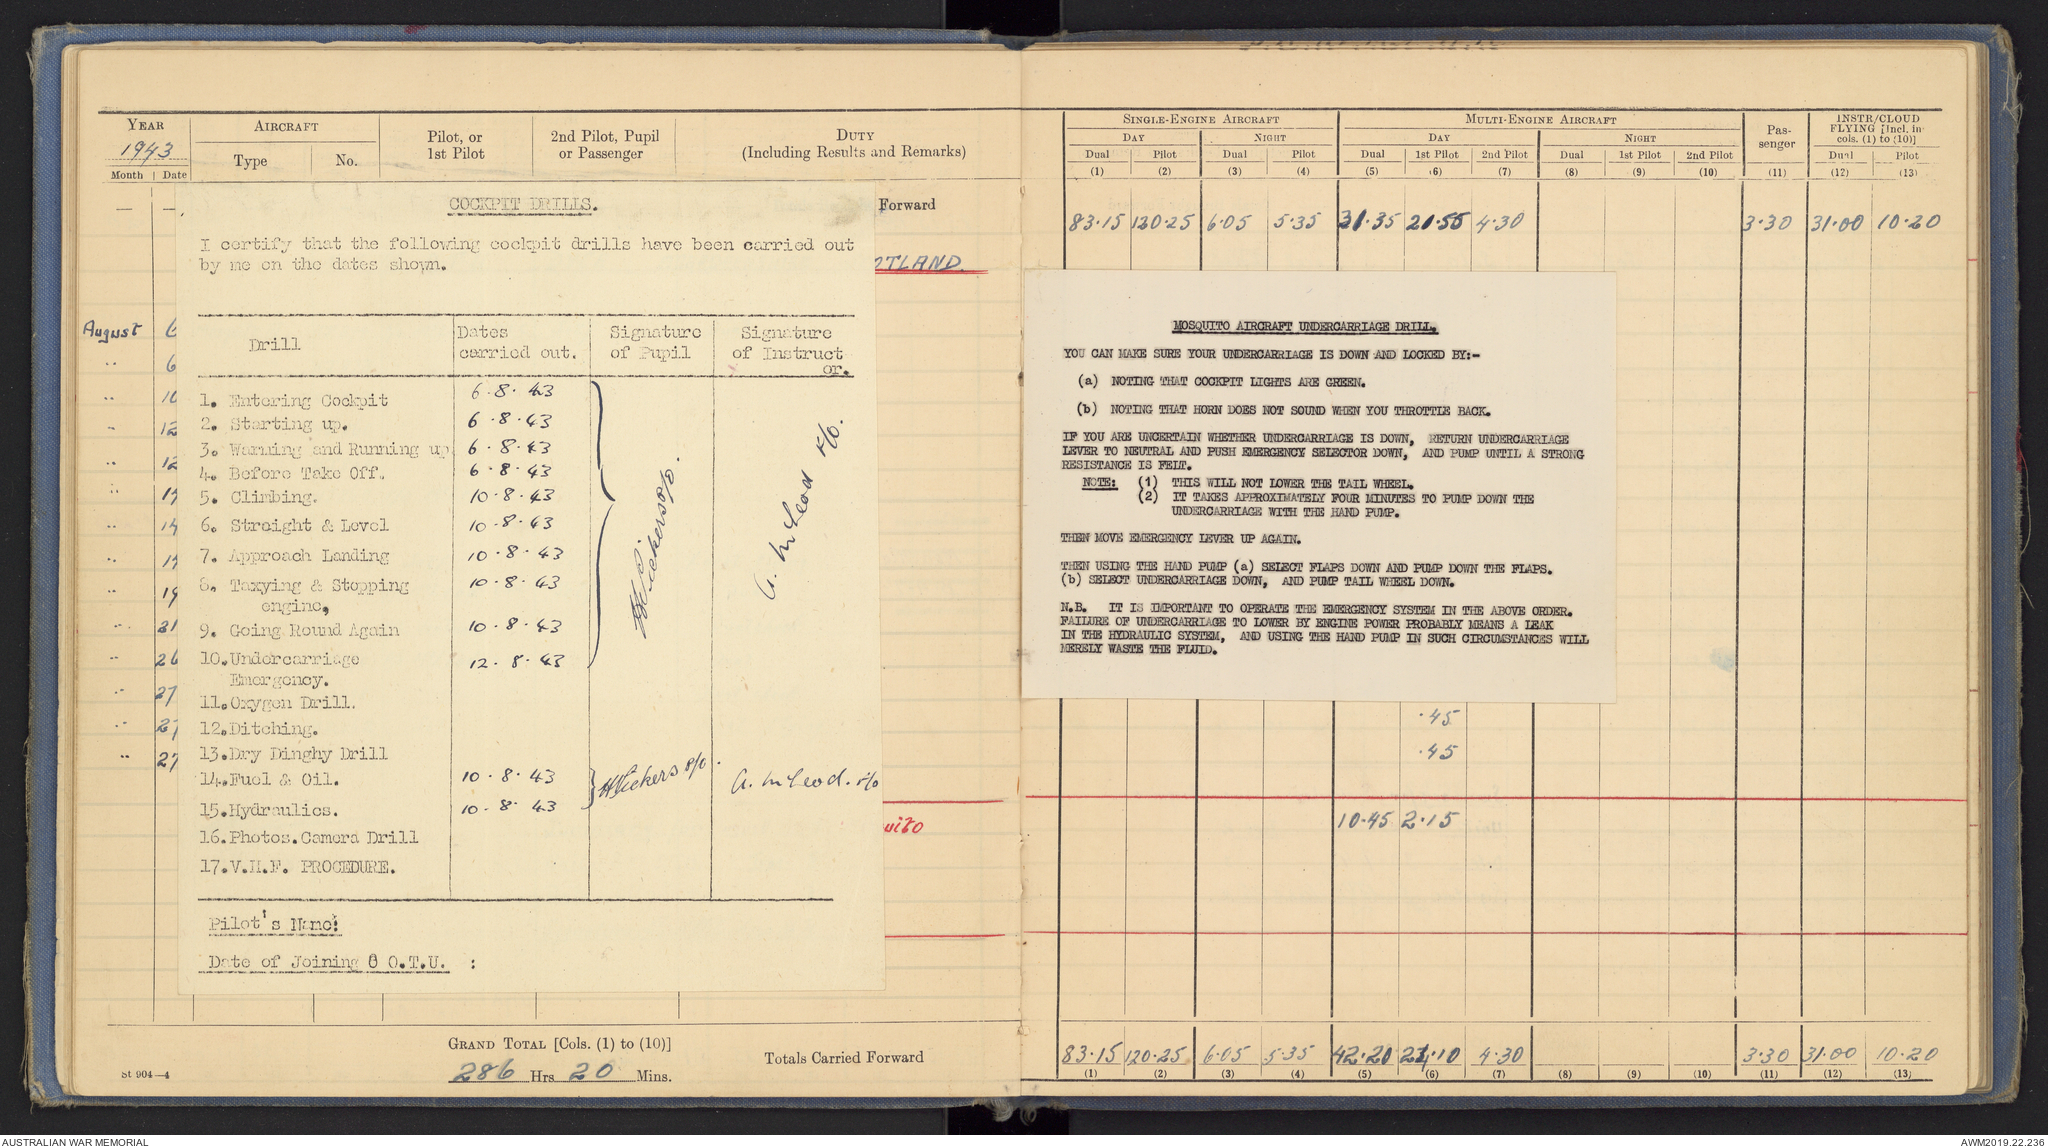 YEAR
1943
Month Date
AIRCRAFT
Type No.
Pilot, or
1st Pilot
2nd Pilot, Pupil
or Passenger
DUTY
(Including Results and Remarks)
— —
Forward
OTLAND.
August 6
" 6
" 10
" 12
" 12
" 14
" 14
" 14
" 19
" 21
" 26
" 27
" 27
" 27
COCKPIT DRILLS.
I certify that the following cockpit drills have been carried out
by me on the dates shown.
Drill
Dates
carried out.
Signature
of Pupil
Signature
of Instruct
or.
1. Entering Cockpit 6.8.43
2. Starting up. 6.8.43
3. Warming and Running up 6.8.43
4. Before Take Off. 6.8.43
5. Climbing. 10.8.43
6. Straight & Level 10.8.43
7. Approach Landing 10.8.43
8. Taxying & Stopping 10.8.43
engine,
9. Going Round Again 10.8.43
10. Undercarriage 12.8.43
Emergency.
11. Oxygen Drill.
12. Ditching.
13. Dry Dinghy Drill
14. Fuel & Oil. 10.8.43
15. Hydraulics. 10.8.43
16. Photos. Camera Drill
17. V.H.F. PROCEDURE.
A. McLeod F/O.
A. McLeod. F/O
uito
Pilot's Name:
Date of Joining 8 O.T.U. :
GRAND TOTAL [Cols. (1) to (10)]
286 Hrs 20 Mins.
Totals Carried Forward
St 904—4
SINGLE-ENGINE AIRCRAFT MULTI-ENGINE AIRCRAFT
DAY NIGHT DAY NIGHT
Dual Pilot Dual Pilot Dual 1st Pilot 2nd Pilot Dual 1st Pilot 2nd Pilot
(1) (2) (3) (4) (5) (6) (7) (8) (9) (10)
Pas-
senger
(11)
INSTR/CLOUD
FLYING [Incl. in
cols. (1) to (10)]
Dual Pilot
(12) (13)
83.15 120.25 6.05 5.35 31.35 21.55 4.30 3.30 31.00 10.20
MOSQUITO AIRCRAFT UNDERCARRIAGE DRILL.
YOU CAN MAKE SURE YOUR UNDERCARRIAGE IS DOWN AND LOCKED BY:-
(a) NOTING THAT COCKPIT LIGHTS ARE GREEN.
(b) NOTING THAT HORN DOES NOT SOUND WHEN YOU THROTTLE BACK.
IF YOU ARE UNCERTAIN WHETHER UNDERCARRIAGE IS DOWN, RETURN UNDERCARRIAGE
LEVER TO NEUTRAL AND PUSH EMERGENCY SELECTOR DOWN, AND PUMP UNTIL A STRONG
RESISTANCE IS FELT.
NOTE: (1) THIS WILL NOT LOWER THE TAIL WHEEL.
(2) IT TAKES APPROXIMATELY FOUR MINUTES TO PUMP DOWN THE
UNDERCARRIAGE WITH THE HAND PUMP.
THEN MOVE EMERGENCY LEVER UP AGAIN.
THEN USING THE HAND PUMP (a) SELECT FLAPS DOWN AND PUMP DOWN THE FLAPS.
(b) SELECT UNDERCARRIAGE DOWN, AND PUMP TAIL WHEEL DOWN.
N.B. IT IS IMPORTANT TO OPERATE THE EMERGENCY SYSTEM IN THE ABOVE ORDER.
FAILURE OF UNDERCARRIAGE TO LOWER BY ENGINE POWER PROBABLY MEANS A LEAK
IN THE HYDRAULIC SYSTEM, AND USING THE HAND PUMP IN SUCH CIRCUMSTANCES WILL
MERELY WASTE THE FLUID.
.45
.45
10.45 2.15
83.15 120.25 6.05 5.35 42.20 24.10 4.30 3.30 31.00 10.20
(1) (2) (3) (4) (5) (6) (7) (8) (9) (10) (11) (12) (13)
AUSTRALIAN WAR MEMORIAL
AWM2019.22.236